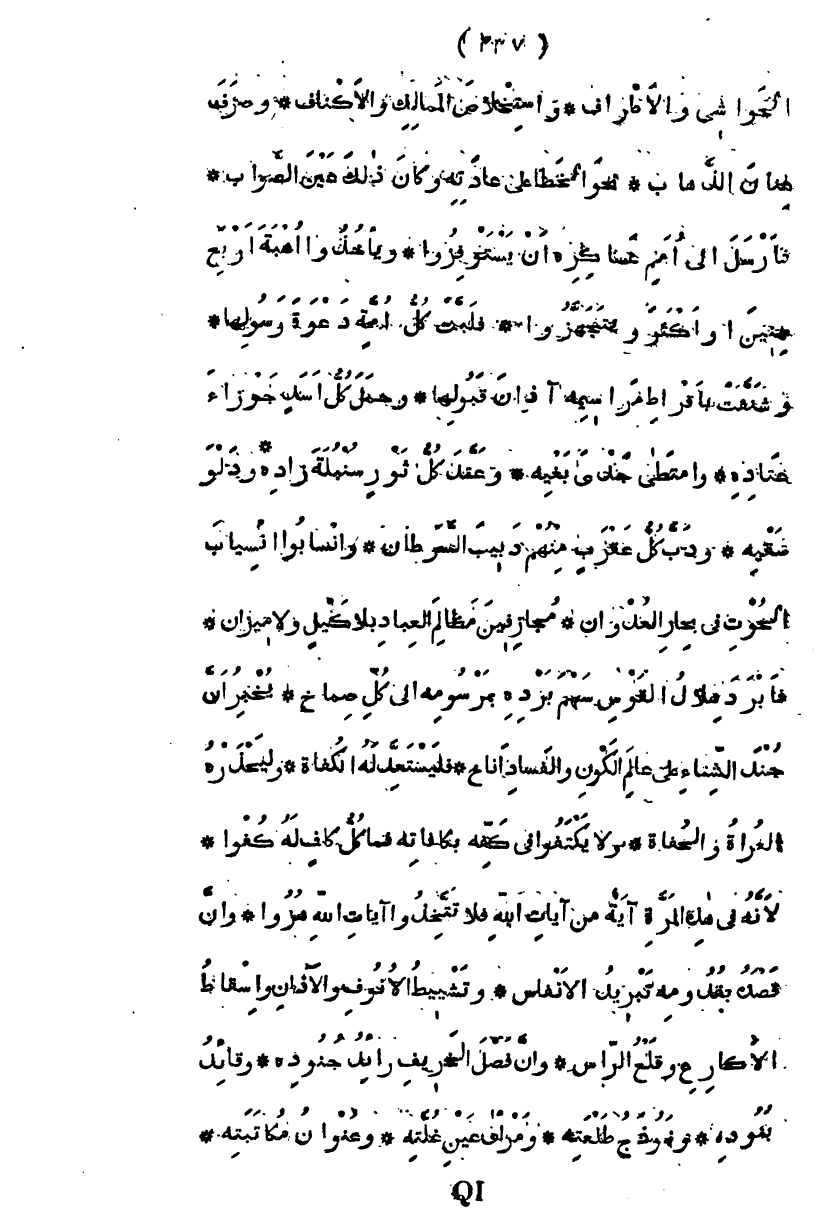 ( ٤٣٧ )
الحَوَاشِي وَالْأَطْرَافِ * وَاسْتِخْلَاصَ الْمَمَالِكِ وَالْأَكْنَافِ * وَصَرَفَ
الذَّهاب * نحوَ الخَطا على عادَتِهِ وكَانَ ذٰلِكَ عَيْنَ الصَّواب *
فَأَرْسَلَ الى أُمَمِ عَساكِرِه أَنْ يَسْتَوْفِزُوا * ويأخُذُوا أُهْبَةَ أَرْبَعِ
سِنِينَ أَوْ أَكْثَرَ ويَتَجَهَّزُوا * فَلَبَّتْ كُلُّ أُمَّةٍ دَعْوَةَ رَسُولِها *
وَشَنَّفَتْ بأَقْراطِ مَراسِمِهِ آذانَ قَبُولِها * وحَمَلَ كُلُّ أَسَدٍ جَوْزاءَ
عَتادِهِ * وامْتَطَى جَدْىَ بَغْيِه * وعَقَدَ كُلُّ ثَوْرٍ سُنْبُلَةَ زَادِهِ * ودَلْوَ
* ودَبَّ كُلُّ عَقْرَبٍ مِنْهُمْ دَبِيبَ السَّرَطان * وانْسابُوا انْسِيابَ
الحُوْتِ فى بِحارِ العُدْوَان * مُجازِفِينَ مَظالِمَ العِبادِ بِلا كَيْلٍ ولا مِيزان *
فَأَبْرَدَ هِلالُ القَوْسِ سَهْمَ بَرْدِهِ بمَرْسُومِه الى كُلِّ صِماخ * يُخْبِرُ أَنَّ
جُنْدَ الشِّتاءِ على عالَمِ الكَوْنِ والفَسادِ أَناخ * فَلْيَسْتَعِدَّ لَهُ الكُفاة * ولْيَحْذَرْهُ
العُراةُ والحُفاة * ولا يَكْتَفُوا فى كَفِّه بكافاتِه فما كُلُّ كافٍ لَهُ كُفْوا *
لأَنَّهُ فى هٰذِه المَرَّةِ آيَةٌ من آياتِ اللهِ فلا تَتَّخِذُوا آياتِ اللهِ هُزُوا * وانَّ
قَصْدَهُ بقُدُومِه تَبْرِيدُ الأنْفاس * وتَشْيِيطُ الأُنُوفِ والآذانِ وإسْقاطُ
الأَكارِعِ وقَلْعُ الرَّاس * وانَّ فَصْلَ الخَرِيفِ رائِدُ جُنُودِه * وقائِدُ
بُنُودِه * ونَمُوذَجُ طَلْعَتِه * عَيْنِ غَلَّتِه * وعُنْوانُ مُكاتَبَتِه *
QI